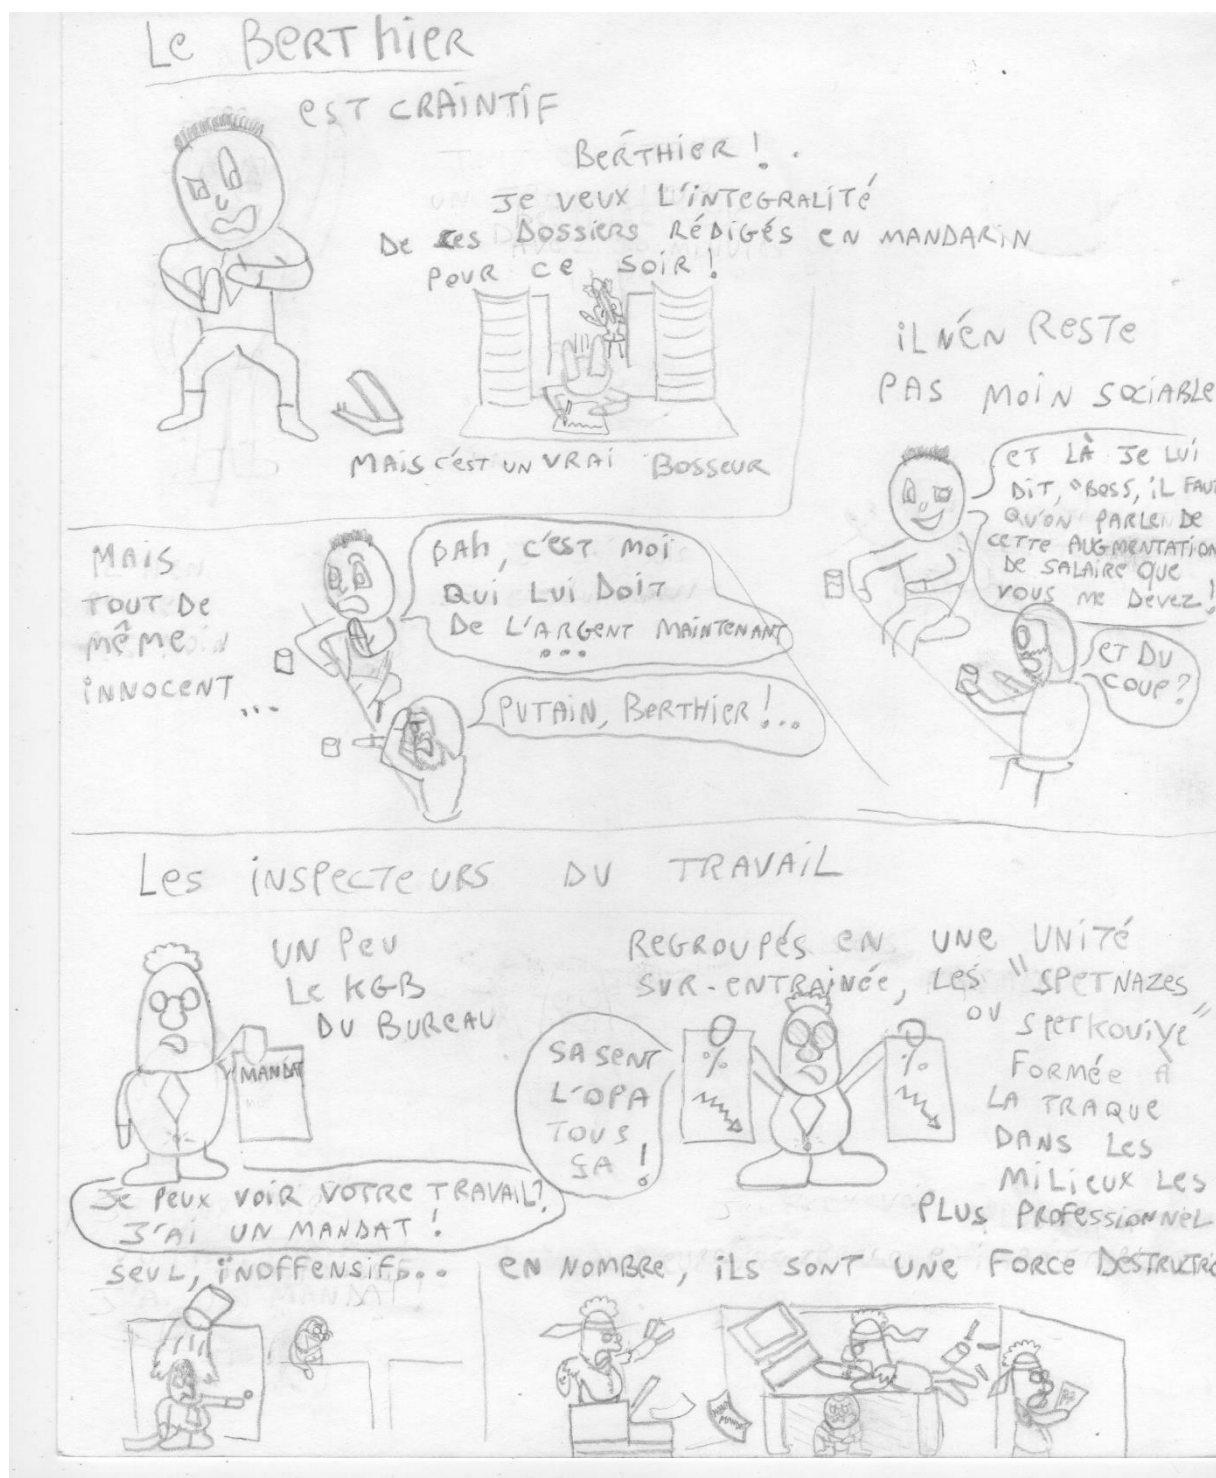 Le BERThieR
est CRAiNTiF
BeRTHieR !
Je veux L'iNTeGRALiTé
De ces DossieRS RÉDiGÉS eN MANDARiN
POUR Ce SOiR !
MAiS c'est UN VRAi BOSSeUR
iL N'éN ReSTe
PAS MOiN SOCiABLe
eT LÀ Je LUi
DiT, "BOSS, iL FAUT
QU'ON PARLe De
CeTTe AUGMeNTATiON
De SALAiRe QUe
VOUS Me Devez !
eT DU
COUP ?
MAiS
TOUT De
MêMe
iNNOCeNT...
BAh, C'eST MOi
QUi LUi DoiT
De L'ARGeNT MAiNTeNANT
...
PUTAiN, BeRTHieR !...
Les iNSPeCTeURS DU TRAVAiL
UN PeU
Le KGB
DU BUReAU
MANDAT
Je Peux VoiR VOTRe TRAVAiL?
J'Ai UN MANDAT !
ReGROUPéS eN UNe UNiTé
SUR-eNTRAiNée, Les "SPeTNAZeS
OU SPeTKOUiYe"
FORMée À
LA TRAQUe
DANS Les
MiLieUX Les
PLUS PROFessiONNeL
SA SeNT
L'OPA
TOUS
ÇA !
%
%
SeUL, iNOFFeNSiF...
eN NOMBRe, iLS SONT UNe FORCe DeSTRUCTRiCe